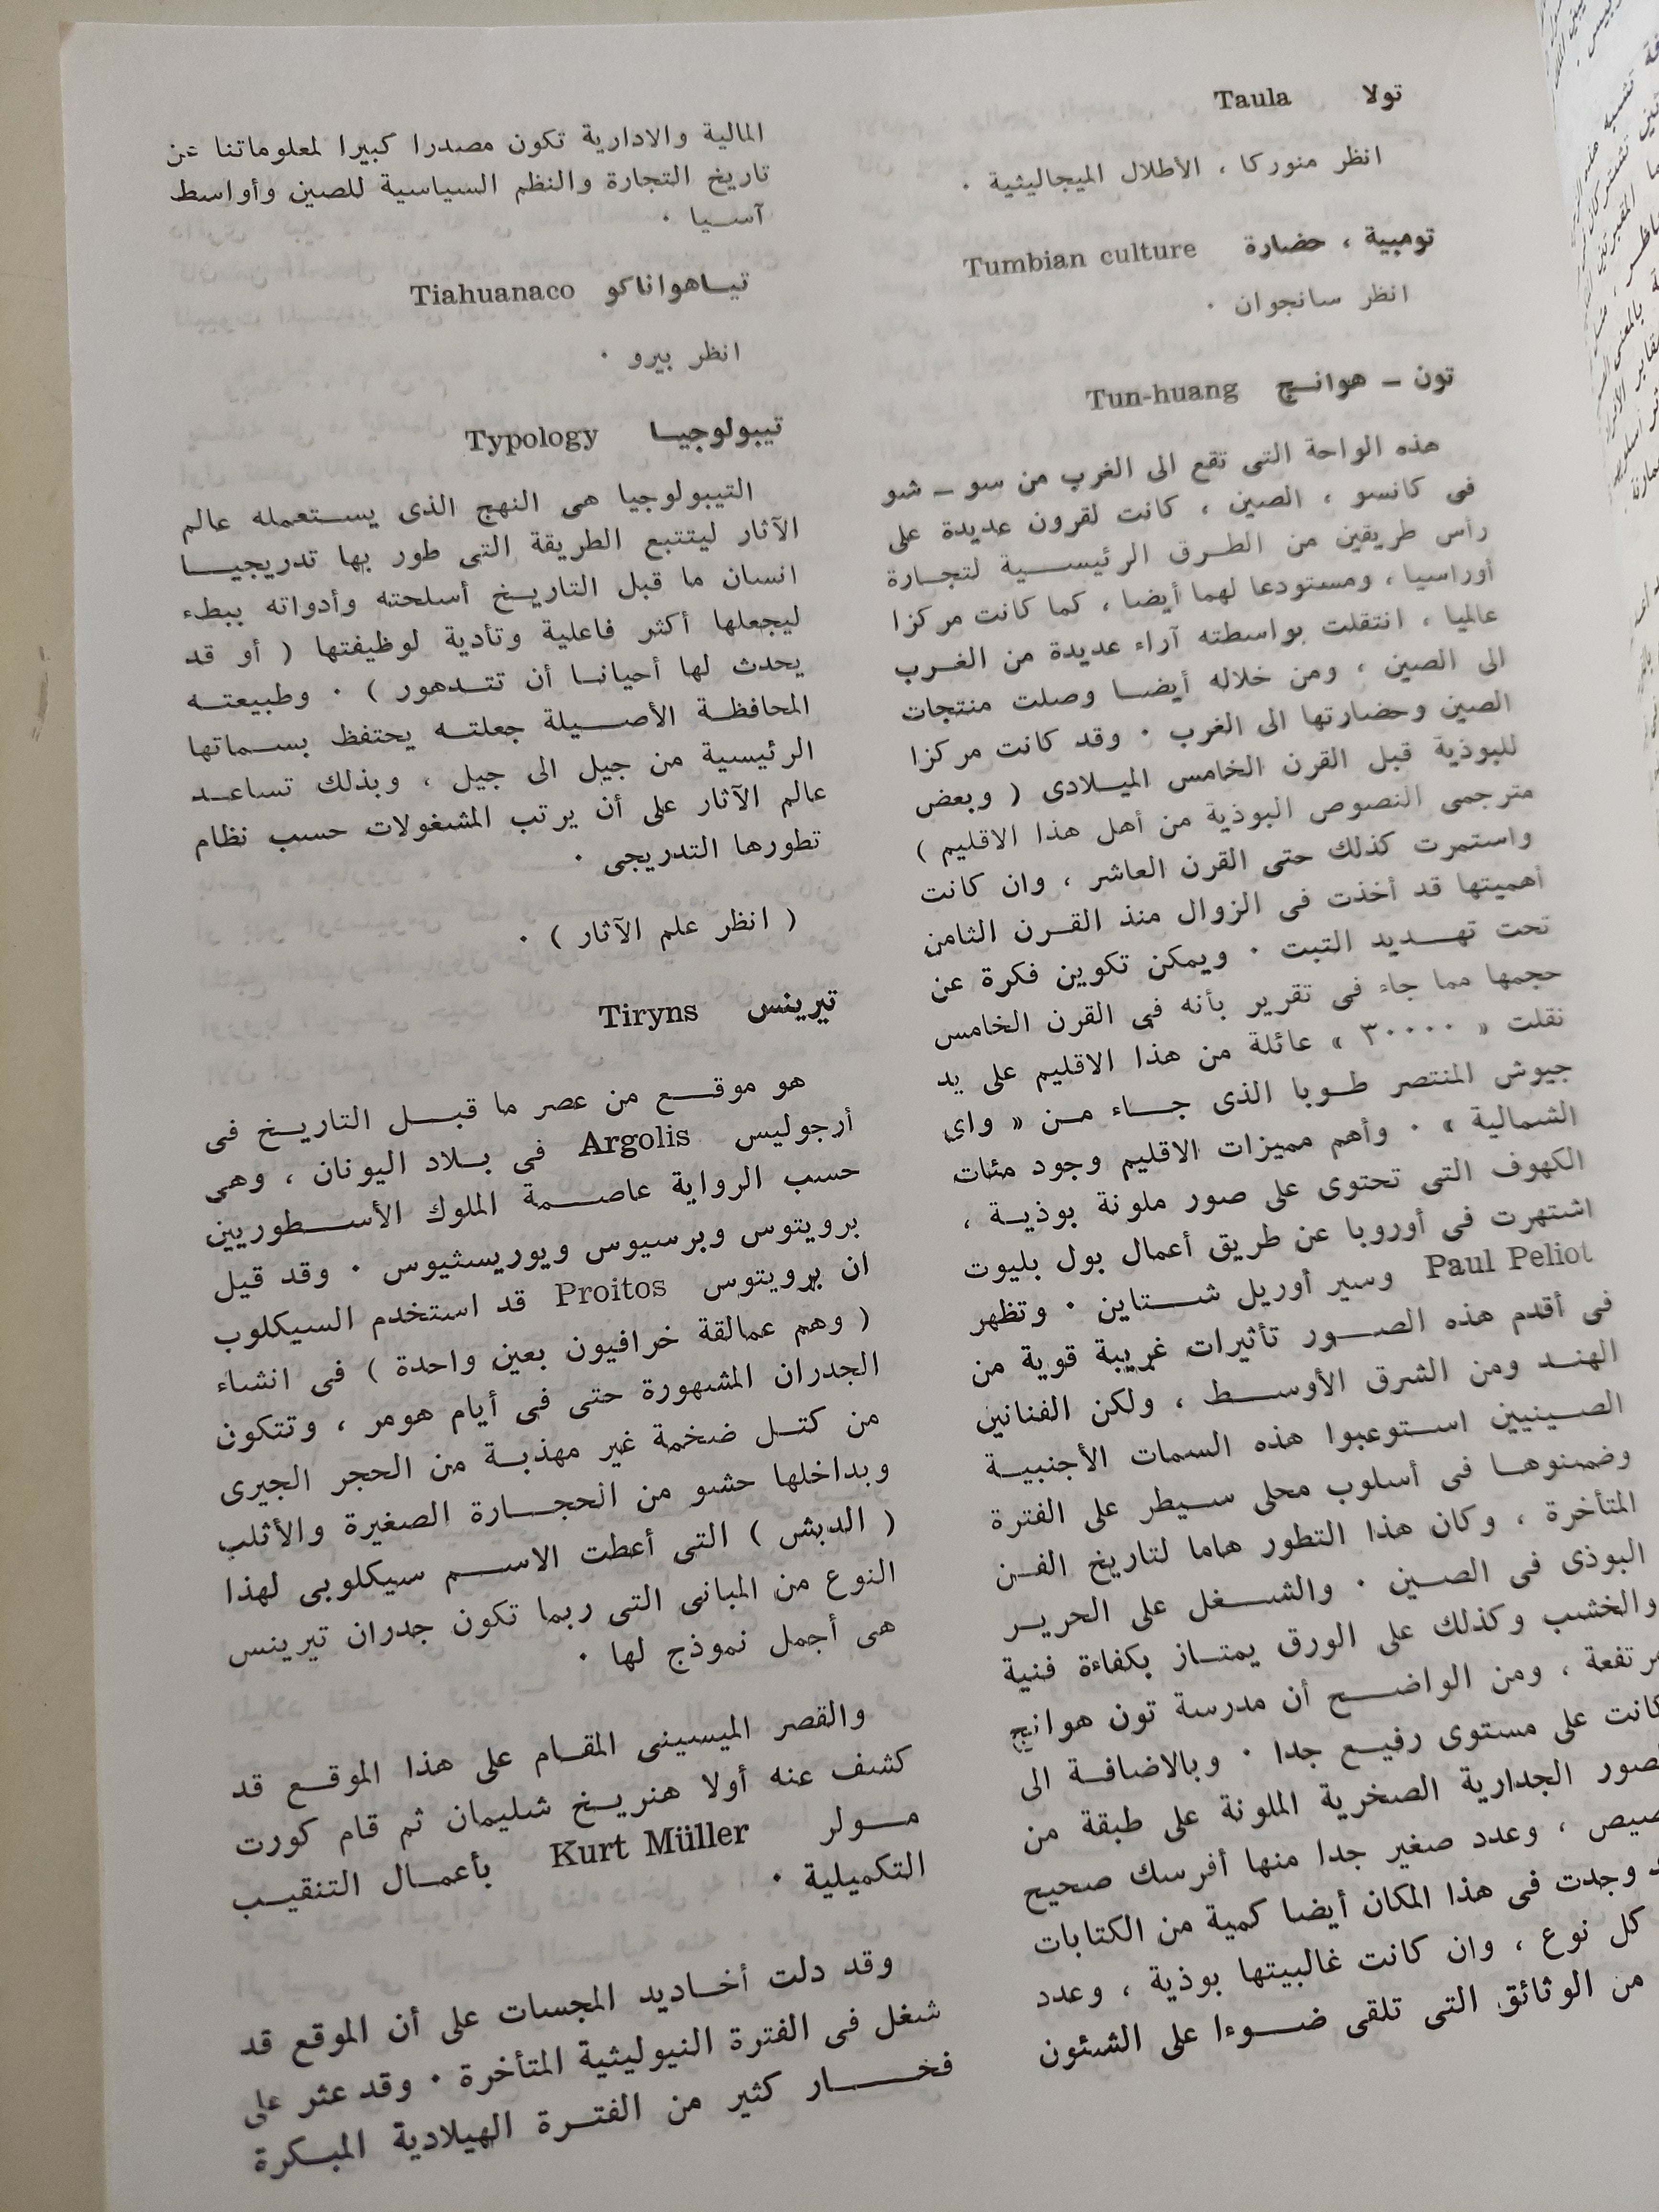 تولا Taula
انظر منوركا ، الأطلال الميجاليثية ٠
تومبية ، حضارة Tumbian culture
انظر سانجوان ٠
تون ـ هوانج Tun-huang
هذه الواحة التى تقع الى الغرب من سو ـ شو
فى كانسو ، الصين ، كانت لقرون عديدة على
رأس طريقين من الطرق الرئيسية لتجارة
أوراسيا ، ومستودعا لهما أيضا ، كما كانت مركزا
عالميا ، انتقلت بواسطته آراء عديدة من الغرب
الى الصين ، ومن خلاله أيضا وصلت منتجات
الصين وحضارتها الى الغرب ٠ وقد كانت مركزا
للبوذية قبل القرن الخامس الميلادى ( وبعض
مترجمى النصوص البوذية من أهل هذا الاقليم )
واستمرت كذلك حتى القرن العاشر ، وان كانت
أهميتها قد أخذت فى الزوال منذ القرن الثامن
تحت تهديد التبت ٠ ويمكن تكوين فكرة عن
حجمها مما جاء فى تقرير بأنه فى القرن الخامس
نقلت « ٣٠٠٠٠ » عائلة من هذا الاقليم على يد
جيوش المنتصر طوبا الذى جاء من « واى
الشمالية » ٠ وأهم مميزات الاقليم وجود مئات
الكهوف التى تحتوى على صور ملونة بوذية ،
اشتهرت فى أوروبا عن طريق أعمال بول بليوت
Paul Peliot وسير أوريل شتاين ٠ وتظهر
فى أقدم هذه الصور تأثيرات غريبة قوية من
الهند ومن الشرق الأوسط ، ولكن الفنانين
الصينيين استوعبوا هذه السمات الأجنبية
وضمنوها فى أسلوب محلى سيطر على الفترة
المتأخرة ، وكان هذا التطور هاما لتاريخ الفن
البوذى فى الصين ٠ والشغل على الحرير
والخشب وكذلك على الورق يمتاز بكفاءة فنية
مرتفعة ، ومن الواضح أن مدرسة تون هوانج
كانت على مستوى رفيع جدا ٠ وبالاضافة الى
الصور الجدارية الصخرية الملونة على طبقة من
، وعدد صغير جدا منها أفرسك صحيح
وجدت فى هذا المكان أيضا كمية من الكتابات
كل نوع ، وان كانت غالبيتها بوذية ، وعدد
من الوثائق التى تلقى ضوءا على الشئون
المالية والادارية تكون مصدرا كبيرا لمعلوماتنا عن
تاريخ التجارة والنظم السياسية للصين وأواسط
آسيا ٠
تياهواناكو Tiahuanaco
انظر بيرو ٠
تيبولوجيا Typology
التيبولوجيا هى النهج الذى يستعمله عالم
الآثار ليتتبع الطريقة التى طور بها تدريجيا
انسان ما قبل التاريخ أسلحته وأدواته ببطء
ليجعلها أكثر فاعلية وتأدية لوظيفتها ( أو قد
يحدث لها أحيانا أن تتدهور ) ٠ وطبيعته
المحافظة الأصيلة جعلته يحتفظ بسماتها
الرئيسية من جيل الى جيل ، وبذلك تساعد
عالم الآثار على أن يرتب المشغولات حسب نظام
تطورها التدريجى ٠
( انظر علم الآثار ) ٠
تيرينس Tiryns
هو موقع من عصر ما قبل التاريخ فى
أرجوليس Argolis فى بلاد اليونان ، وهى
حسب الرواية عاصمة الملوك الأسطوريين
برويتوس وبرسيوس ويوريسثيوس ٠ وقد قيل
ان برويتوس Proitos قد استخدم السيكلوب
( وهم عمالقة خرافيون بعين واحدة ) فى انشاء
الجدران المشهورة حتى فى أيام هومر ، وتتكون
من كتل ضخمة غير مهذبة من الحجر الجيرى
وبداخلها حشو من الحجارة الصغيرة والأثلب
( الدبش ) التى أعطت الاسم سيكلوبى لهذا
النوع من المبانى التى ربما تكون جدران تيرينس
هى أجمل نموذج لها ٠
والقصر الميسينى المقام على هذا الموقع قد
كشف عنه أولا هنريخ شليمان ثم قام كورت
مولر Kurt Müller بأعمال التنقيب
التكميلية ٠
وقد دلت أخاديد المجسات على أن الموقع قد
شغل فى الفترة النيوليثية المتأخرة ٠ وقد عثر على
فخار كثير من الفترة الهيلادية المبكرة